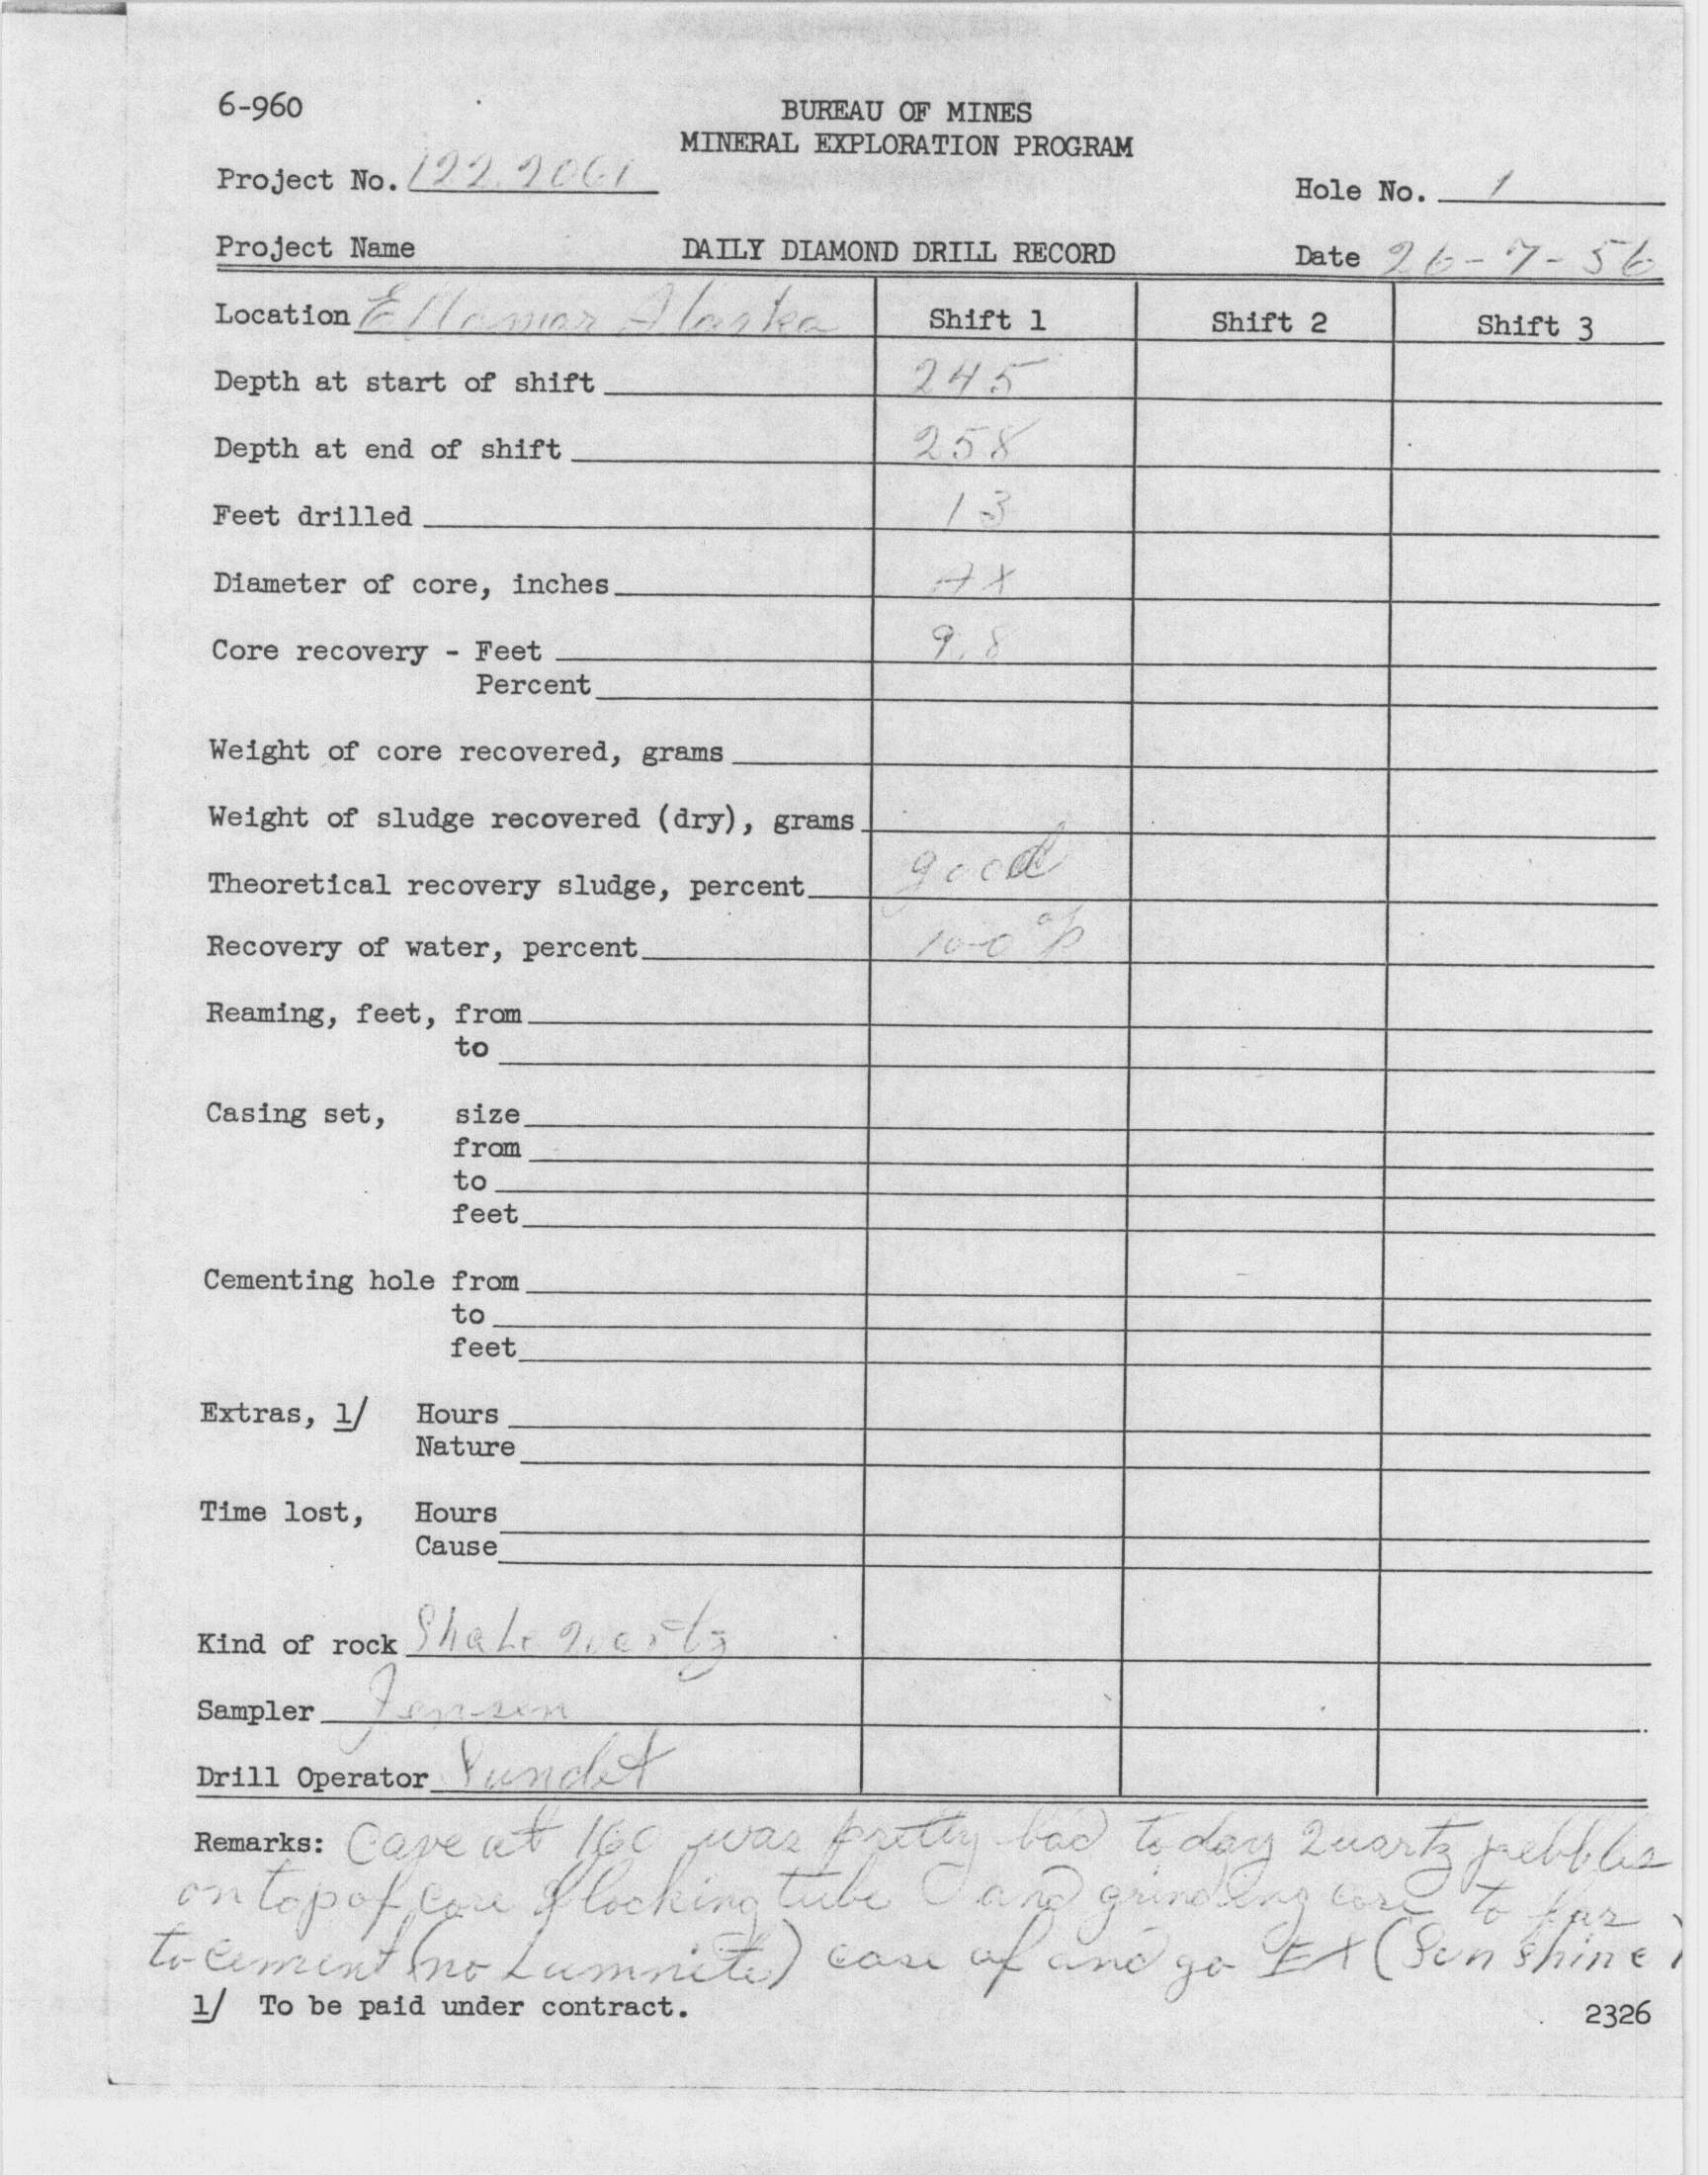 6-960
BUREAU OF MINES
MINERAL EXPLORATION PROGRAM
Project No. 122.2061
Hole No. 1
Project Name DAILY DIAMOND DRILL RECORD Date 26-7-56
Location Ellamar Alaska Shift 1 Shift 2 Shift 3
Depth at start of shift 245
Depth at end of shift 258
Feet drilled 13
Diameter of core, inches AX
Core recovery - Feet 9.8
Percent
Weight of core recovered, grams
Weight of sludge recovered (dry), grams
Theoretical recovery sludge, percent good
Recovery of water, percent 100%
Reaming, feet, from
to
Casing set, size
from
to
feet
Cementing hole from
to
feet
Extras, 1/ Hours
Nature
Time lost, Hours
Cause
Kind of rock Shale Quartz
Sampler Jensen
Drill Operator
Remarks: Cave at 160 was pretty bad today Quartz pebbles
on top of core blocking tube and grinding core to far
to cement (no Lumnite) case of and go EX (Sunshine)
1/ To be paid under contract.
2326